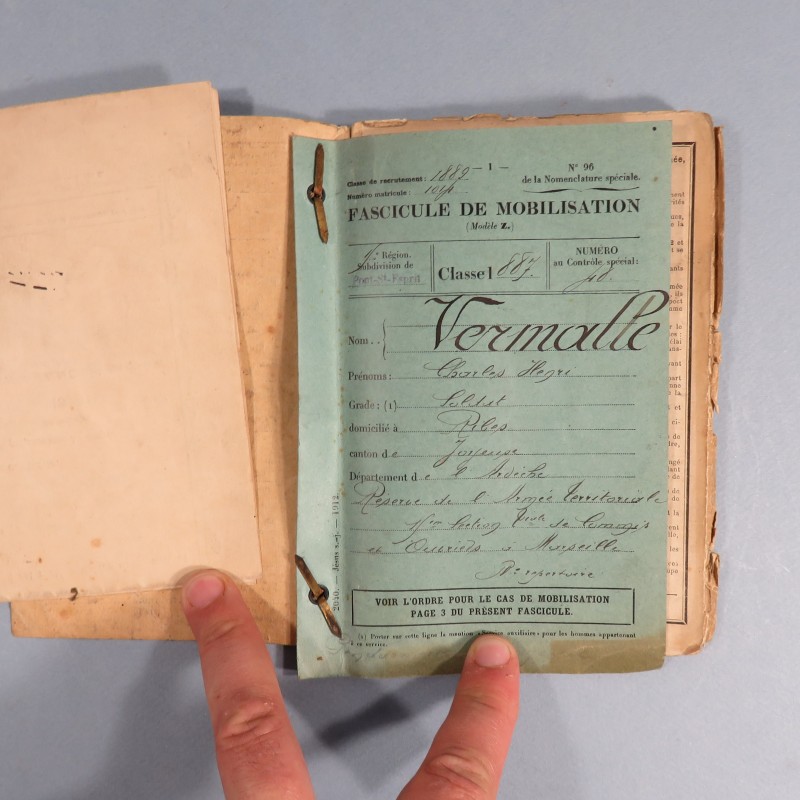 — 1 —
Classe de recrutement : 1889
Nº 96
de la Nomenclature spéciale.
Numéro matricule :
FASCICULE DE MOBILISATION
(Modèle Z.)
Région.
Subdivision de
Pont-St-Esprit
Classe 1887.
NUMÉRO
au Contrôle spécial :
48.
Nom . . Vermalle
Prénoms : Charles Henri
Grade : (1) Soldat
domicilié à Ribes
canton de Joyeuse
Département de l'Ardèche
Réserve de l'Armée Territoriale
15em Section de Commis
et Ouvriers à Marseille
Nº répertoire
VOIR L'ORDRE POUR LE CAS DE MOBILISATION
PAGE 3 DU PRÉSENT FASCICULE.
(1) Porter sur cette ligne la mention «Service auxiliaire» pour les hommes appartenant
à ce service.